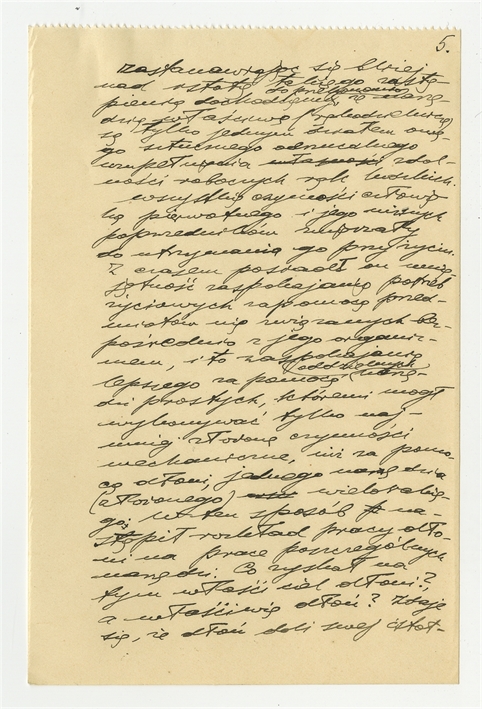 5.
zastanawiając się bliżej
nad istotą takiego zastą-
pienia dochodzimy do przekonania, że narzę-
dzia
są tylko jednym działem owe-
go sztucznego
uzupełniania zdol-
ności roboczych rąk ludzkich.
wszystkie czynności człowie-
ka pierwotnego i jego niższych
poprzedników zmierzały
do utrzymania go przy życiu.
Z czasem posiadł on umie-
jętność zaspokajania potrzeb
życiowych za pomocą przed-
miotów nie związanych bez-
pośrednio z jego organiz-
mem, i to zaspokajania
lepszego za pomocą oddzielnych narzę-
dzi prostych, któremi mógł
wykonywać tylko naj-
mniej złożone czynności
mechaniczne, niż za pomo-
cą dłoni, jednego narzędzia
(złożonego) wielorakie-
go; w ten sposób na-
stąpił rozkład pracy dło-
ni na prace poszczególnych
narzędzi. Co zyskał na
tym właściciel dłoni?,
a właściwie dłoń? Zdaje
się, że dłoń dali swej